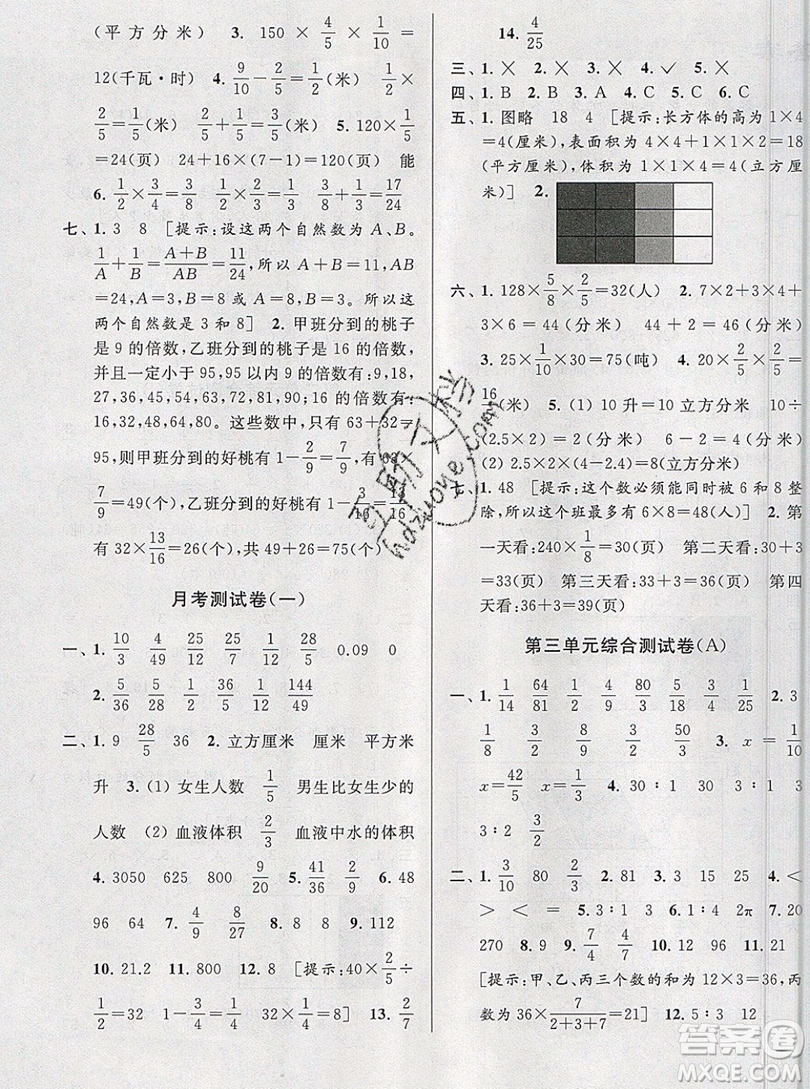 (平方分米) 3. 150×4/5×1/10=
12(千瓦·时) 4. 9/10-2/5=1/2(米) 1/2÷
2/5+2/5=1/2(米) 5. 120×1/5
=24(页) 24+16×(7-1)=120(页) 能
6. 1/2×3/4=3/8 1/2×3/4+1/3=17/24
七、1. 3 8 [提示:设这两个自然数为A、B。
1/A+1/B=(A+B)/AB=11/24,所以A+B=11,AB
=24,所以A=3,B=8或A=8,B=3。所以这
两个自然数是3和8] 2. 甲班分到的桃子
是9的倍数,乙班分到的桃子是16的倍数,
并且一定小于95,95以内9的倍数有:9,18,
27,36,45,54,63,72,81,90;16的倍数有:
16,32,48,64,80。这些数中,只有63+32=
95,则甲班分到的好桃有1-2/9=7/9,63×
7/9=49(个),乙班分到的好桃有1-3/16=13/16
有32×13/16=26(个),共49+26=75(个)
月考测试卷(一)
一、1. 10/3 4/49 28/5 5/28 1/2 28/5 0.09 0
2. 5/56 5/28 1/2 5/6 1/12 144/49
二、1. 9 28/5 36 2. 立方厘米 厘米 平方米
升 3. (1) 女生人数 1/5 男生比女生少的
人数 (2) 血液体积 2/3 血液中水的体积
4. 3050 625 800 9/20 5. 41/50 36/29 6. 48
96 64 7. 4/9 8/27 8. 40 9. 112
10. 21.2 11. 800 12. 8 [提示:40×2/5÷
1/2=32 1-3/4=1/4 32×1/4=8] 13. 2/7
14. 4/25
三、1. × 2. × 3. × 4. ✓ 5. ×
四、1. B 2. B 3. A 4. C 5. C 6. C
五、1. 图略 18 4 [提示:长方体的高为1×4
=4(厘米),表面积为4×4+1×1×2=
(平方厘米),体积为1×1×4=4(立方厘
米)] 2.
六、1. 128×5/8×2/5=32(人) 2. 7×2+3×4+
3×6=44(分米) 44+2=46(分米)
3. 25×1/10×30=75(吨) 4. 20×2/5×2/5=
16/5(米) 5. (1) 10升=10立方分米
(2.5×2)=2(分米) 6-2=4(分米)
(2) 2.5×2×(4-2.4)=8(立方分米)
七、1. 48 [提示:这个数必须能同时被6和8整
除,所以这个班最多有6×8=48(人)] 2. 第
一天看:240×1/8=30(页) 第二天看:30+3
=33(页) 第三天看:33+3=36(页) 第四
天看:36+3=39(页)
第三单元综合测试卷(A)
一、1. 1/14 64/81 1/4 3/4 4/7 1/2 2. 3/
1/8 9/2 3/32 50/3 3. x=
x=42/5 x=1/3 4. 30∶1 30∶1
3∶2
二、1. 3/10 80 2/3 2. 81 3. 3/4 4. <
> < = 5. 3∶1 6. 1∶4 2π 7.
270 8. 9 9. 7/4 4/7 10. 2/3 11.
[提示:甲、乙、丙三个数的和为12×3=36,丙
数为36×7/(2+3+7)] 12. 5∶3 2
答案圈